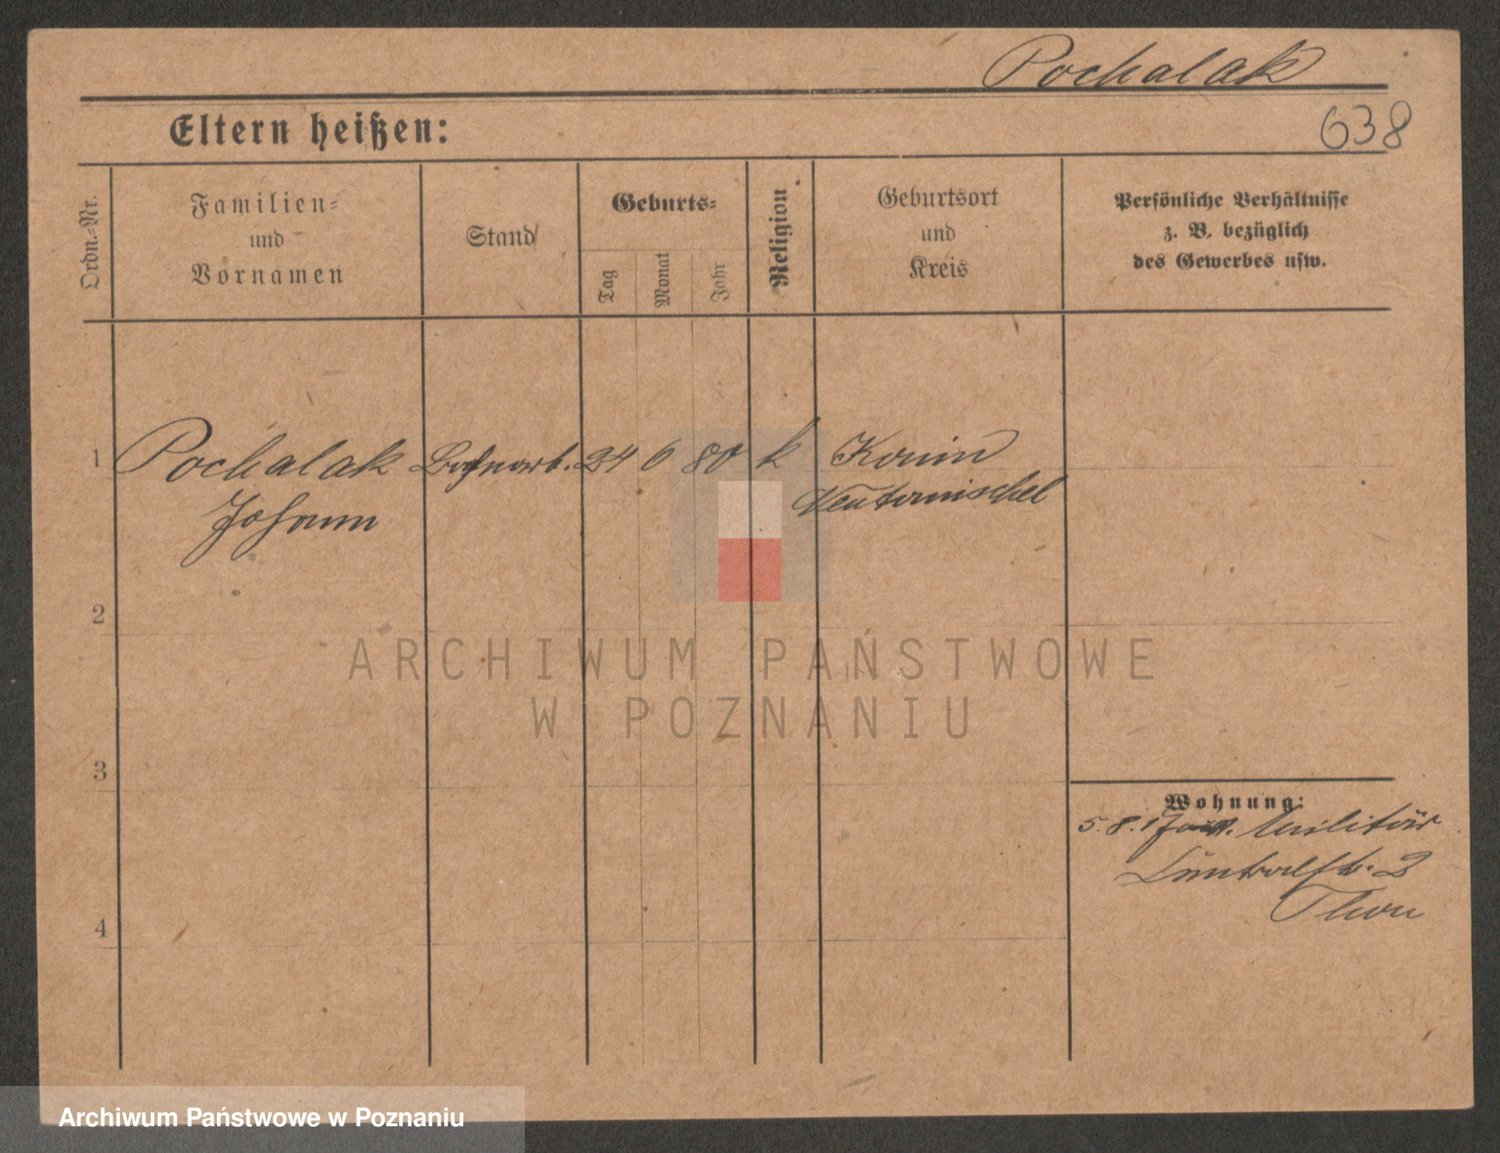 Pochalak
638
Eltern heißen:
Ordn.-Nr.
Familien-
und
Vornamen
Stand
Geburts-
Tag
Monat
Jahr
Religion
Geburtsort
und
Kreis
Persönliche Verhältnisse
z. B. bezüglich
des Gewerbes usw.
1 Pochalak 24 6 80 k Konin
Johann Neutomischel
2
3
4
Wohnung:
5. 8. Militär
2
Thorn
ARCHIWUM PAŃSTWOWE
W POZNANIU
Archiwum Państwowe w Poznaniu